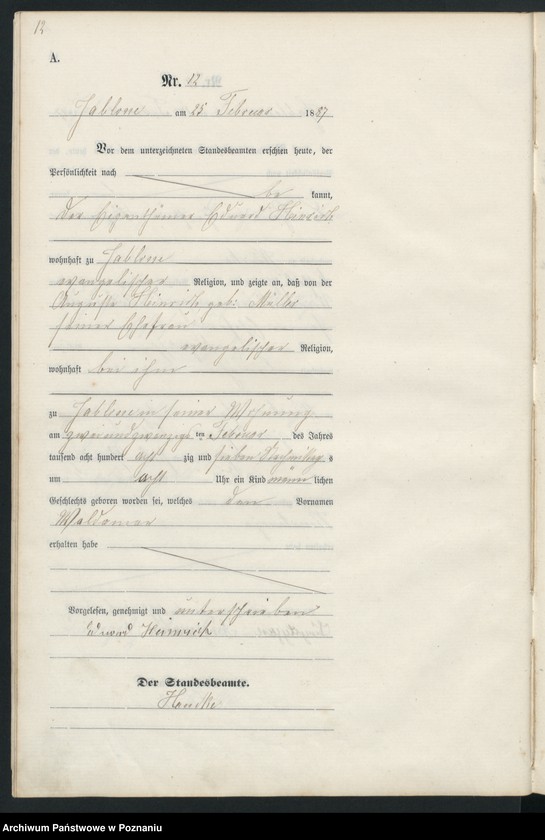 12
A.
Nr. 12
Jablone am 25 Februar 1887
Vor dem unterzeichneten Standesbeamten erschien heute, der
Persönlichkeit nach
be kannt,
der Eigenthümer Eduard Heinrich
wohnhaft zu Jablone
evangelischer Religion, und zeigte an, daß von der
Auguste Heinrich geb: Müller
seiner Ehefrau
evangelischer Religion,
wohnhaft bei ihm
zu Jablone in seiner Wohnung
am zweiundzwanzigs ten Februar des Jahres
tausend acht hundert acht zig und sieben Nachmittag s
um acht Uhr ein Kind männ lichen
Geschlechts geboren worden sei, welches den Vornamen
Waldemar
erhalten habe
Vorgelesen, genehmigt und unterschrieben
Eduard Heinrich
Der Standesbeamte.
Archiwum Państwowe w Poznaniu